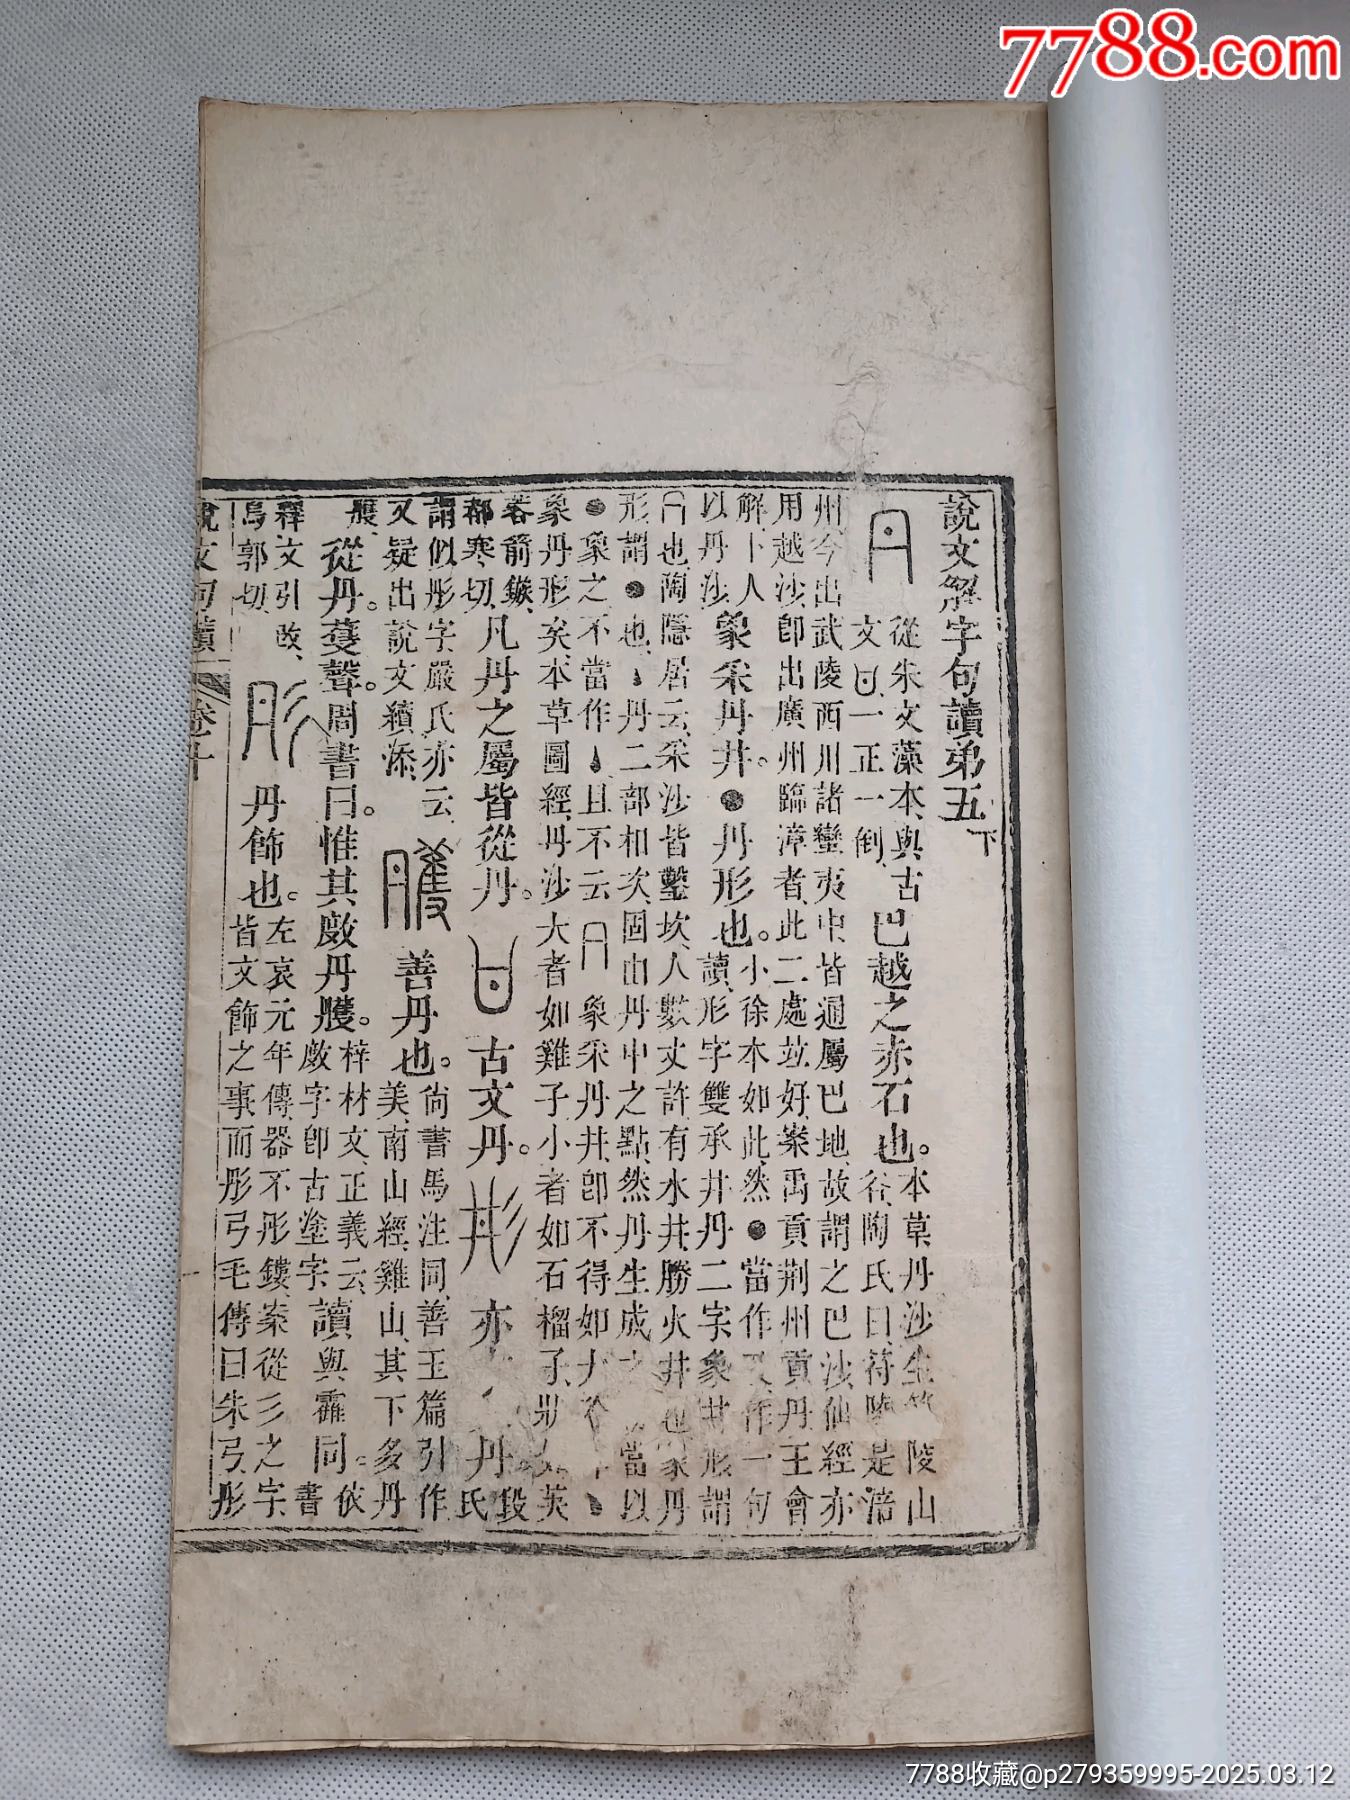 7788.com
說文解字句讀弟五下
從朱文藻本與古
文一正一倒
巴越之赤石也。
本草丹沙生符陵山
谷陶氏曰符陵是涪
州今出武陵西川諸蠻夷中皆通屬巴地故謂之巴沙仙經亦
用越沙卽出廣州臨漳者此二處並好案禹貢荆州貢丹王會
解卜人
以丹沙
象采丹井。●丹形也。
小徐本如此然●當作 作一句
讀形字雙承井丹二字象井形謂
也陶隱居云采沙皆鑿坎人數丈許有水井勝火井也象丹
形謂●也丶丹二部相次固由丹中之點然丹生成 當以
●象之不當作丶且不云 象采丹井卽不得如
象丹形矣本草圖經丹沙大者如雞子小者如石榴子 英
若箭鏃
都寒切
凡丹之屬皆從丹。
古文丹。
亦 丹
段氏
謂似彤字嚴氏亦云
又疑出說文續添
善丹也。
尙書馬注同善玉篇引作
美南山經雞山其下多丹
雘
從丹。蒦聲。周書曰。惟其敳丹雘。
梓材文正義云
敳字卽古塗字
讀與霍同。
依書
釋文引改
烏郭切
丹飾也。
左哀元年傳器不彤鏤案從彡之字
皆文飾之事而彤弓毛傳曰朱弓彤
說文句讀 卷十
7788收藏@p279359995-2025.03.12